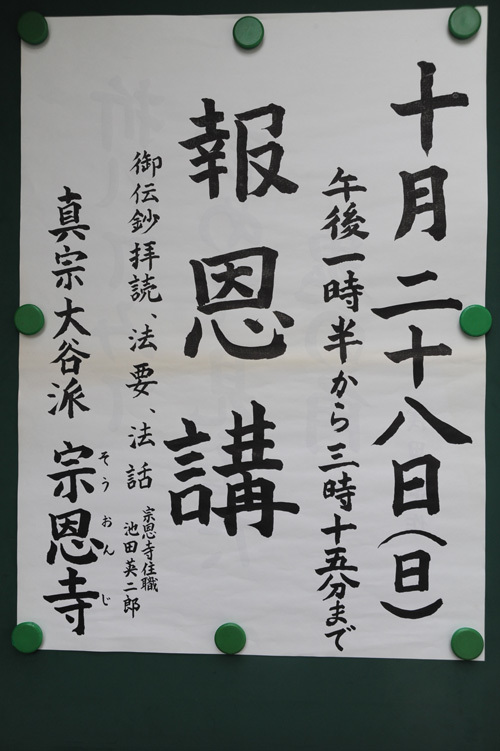 十月二十八日(日)
午後一時半から三時十五分まで
報恩講
御伝鈔拝読、法要、法話
宗恩寺住職
池田英二郎
真宗大谷派 宗恩寺
そうおんじ